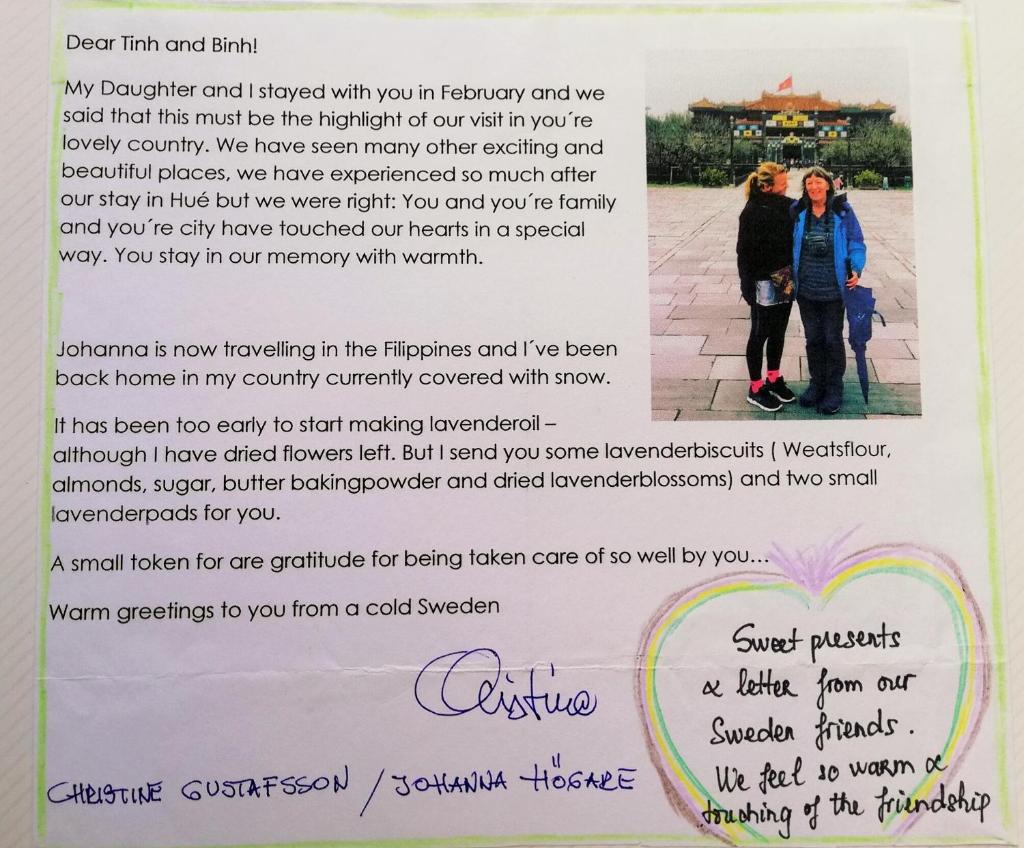 Dear Tinh and Binh!
My Daughter and I stayed with you in February and we
said that this must be the highlight of our visit in you´re
lovely country. We have seen many other exciting and
beautiful places, we have experienced so much after
our stay in Hué but we were right: You and you´re family
and you´re city have touched our hearts in a special
way. You stay in our memory with warmth.
Johanna is now travelling in the Filippines and I´ve been
back home in my country currently covered with snow.
It has been too early to start making lavenderoil –
although I have dried flowers left. But I send you some lavenderbiscuits ( Weatsflour,
almonds, sugar, butter bakingpowder and dried lavenderblossoms) and two small
lavenderpads for you.
A small token for are gratitude for being taken care of so well by you…
Warm greetings to you from a cold Sweden
Christine
CHRISTINE GUSTAFSSON / JOHANNA HÖGARE
Sweet presents
& letter from our
Sweden friends.
We feel so warm &
touching of the friendship